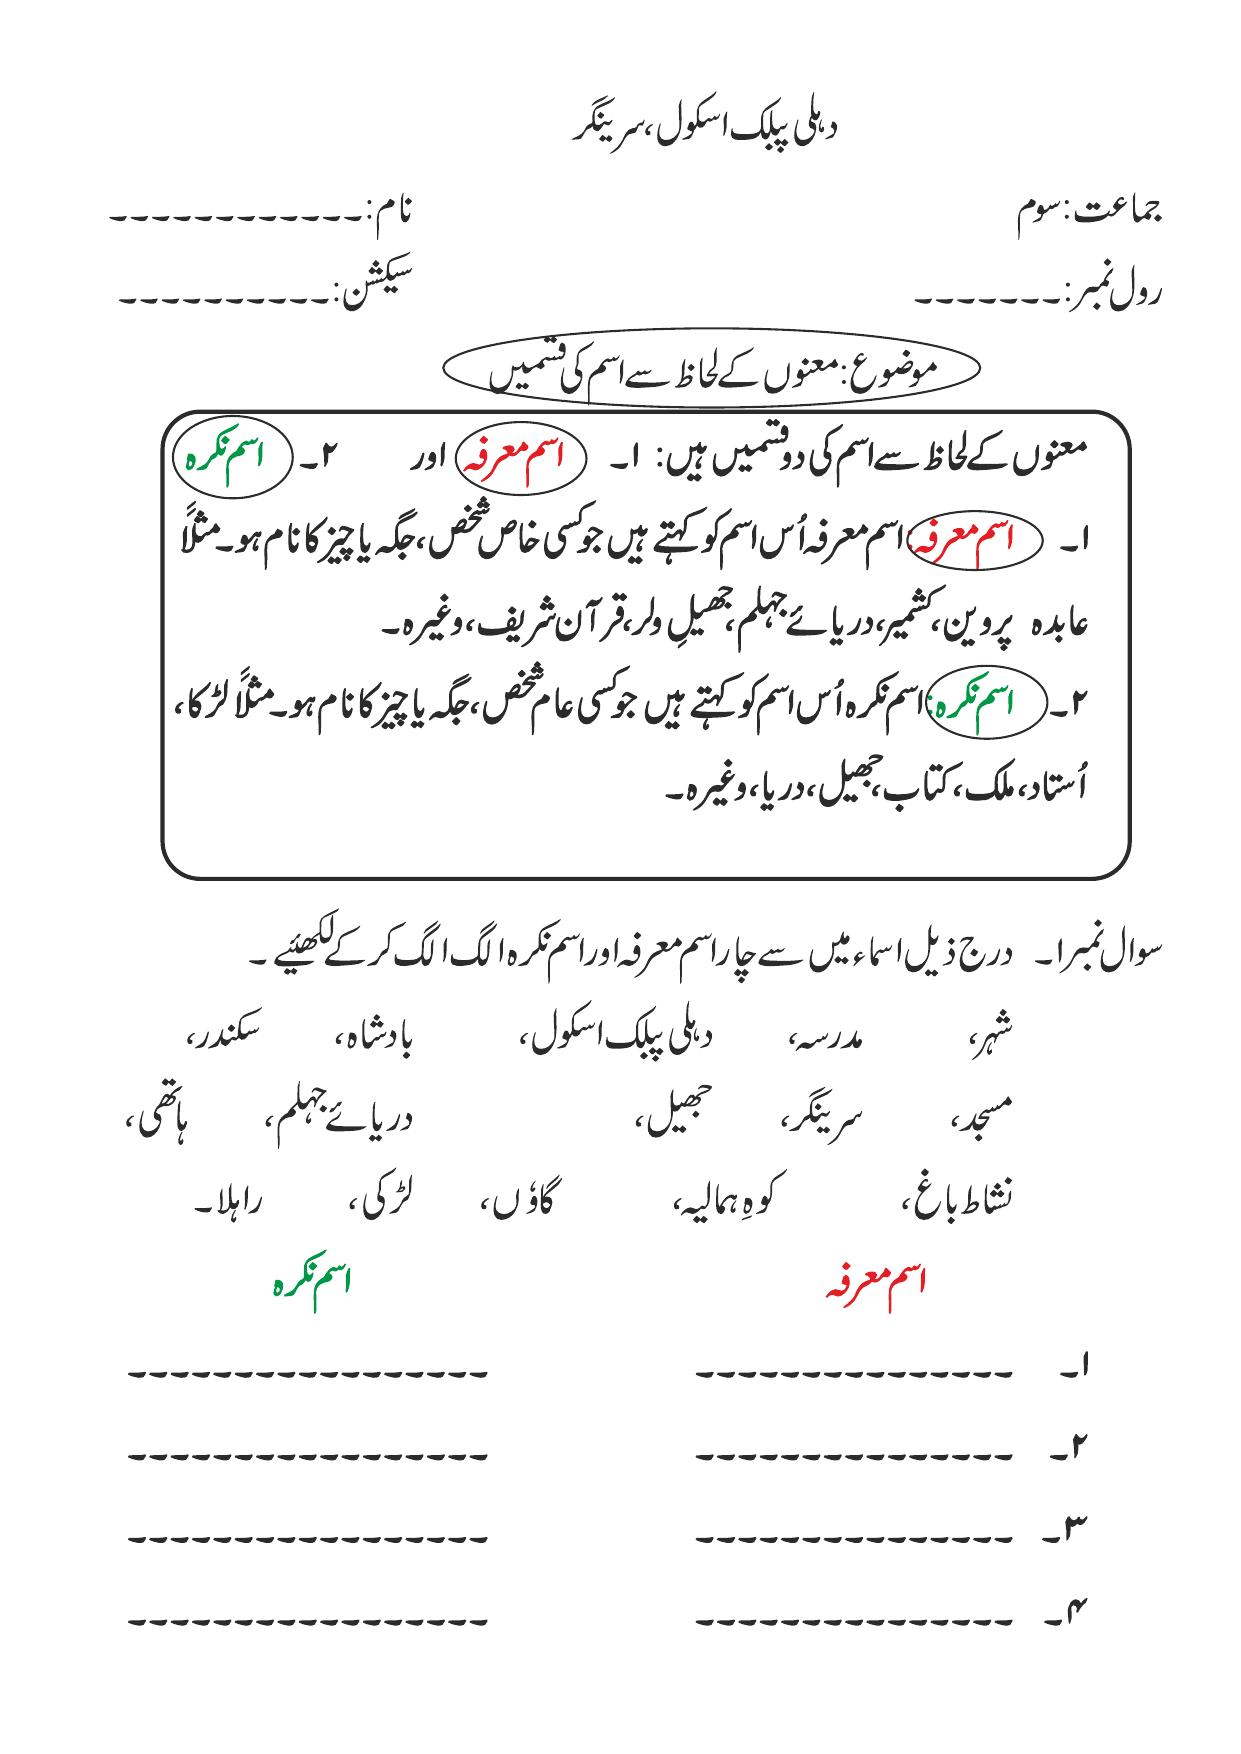 دہلی پبلک اسکول، سرینگر
جماعت: سوم نام: ۔۔۔۔۔۔۔۔۔۔۔۔
رول نمبر: ۔۔۔۔۔۔۔ سیکشن: ۔۔۔۔۔۔۔۔۔۔
موضوع: معنوں کے لحاظ سے اسم کی قسمیں
معنوں کے لحاظ سے اسم کی دو قسمیں ہیں: ۱۔ اسم معرفہ اور ۲۔ اسم نکرہ
۱۔ اسم معرفہ: اسم معرفہ اُس اسم کو کہتے ہیں جو کسی خاص شخص، جگہ یا چیز کا نام ہو۔ مثلاً
عابدہ پروین، کشمیر، دریائے جہلم، جھیلِ ولر، قرآن شریف، وغیرہ۔
۲۔ اسم نکرہ: اسم نکرہ اُس اسم کو کہتے ہیں جو کسی عام شخص، جگہ یا چیز کا نام ہو۔ مثلاً لڑکا،
اُستاد، ملک، کتاب، جھیل، دریا، وغیرہ۔
سوال نمبر ۱۔ درج ذیل اسماء میں سے چار اسم معرفہ اور اسم نکرہ الگ الگ کر کے لکھئیے۔
شہر، مدرسہ، دہلی پبلک اسکول، بادشاہ، سکندر،
مسجد، سرینگر، جھیل، دریائے جہلم، ہاتھی،
نشاط باغ، کوہِ ہمالیہ، گاؤں، لڑکی، راہلا۔
اسم معرفہ اسم نکرہ
۱۔ ۔۔۔۔۔۔۔۔۔۔۔۔۔۔۔ ۔۔۔۔۔۔۔۔۔۔۔۔۔۔۔۔۔
۲۔ ۔۔۔۔۔۔۔۔۔۔۔۔۔۔۔ ۔۔۔۔۔۔۔۔۔۔۔۔۔۔۔۔۔
۳۔ ۔۔۔۔۔۔۔۔۔۔۔۔۔۔۔ ۔۔۔۔۔۔۔۔۔۔۔۔۔۔۔۔۔
۴۔ ۔۔۔۔۔۔۔۔۔۔۔۔۔۔۔ ۔۔۔۔۔۔۔۔۔۔۔۔۔۔۔۔۔